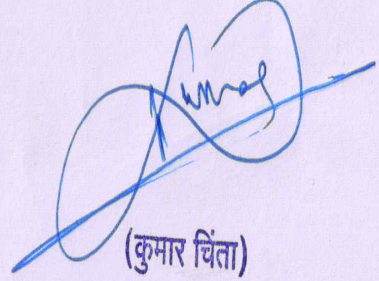 Kumar
(कुमार चिंता)